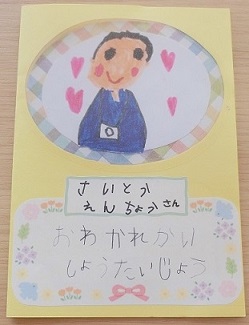 さいとう
えんちょうさん
おわかれかい
しょうたいじょう